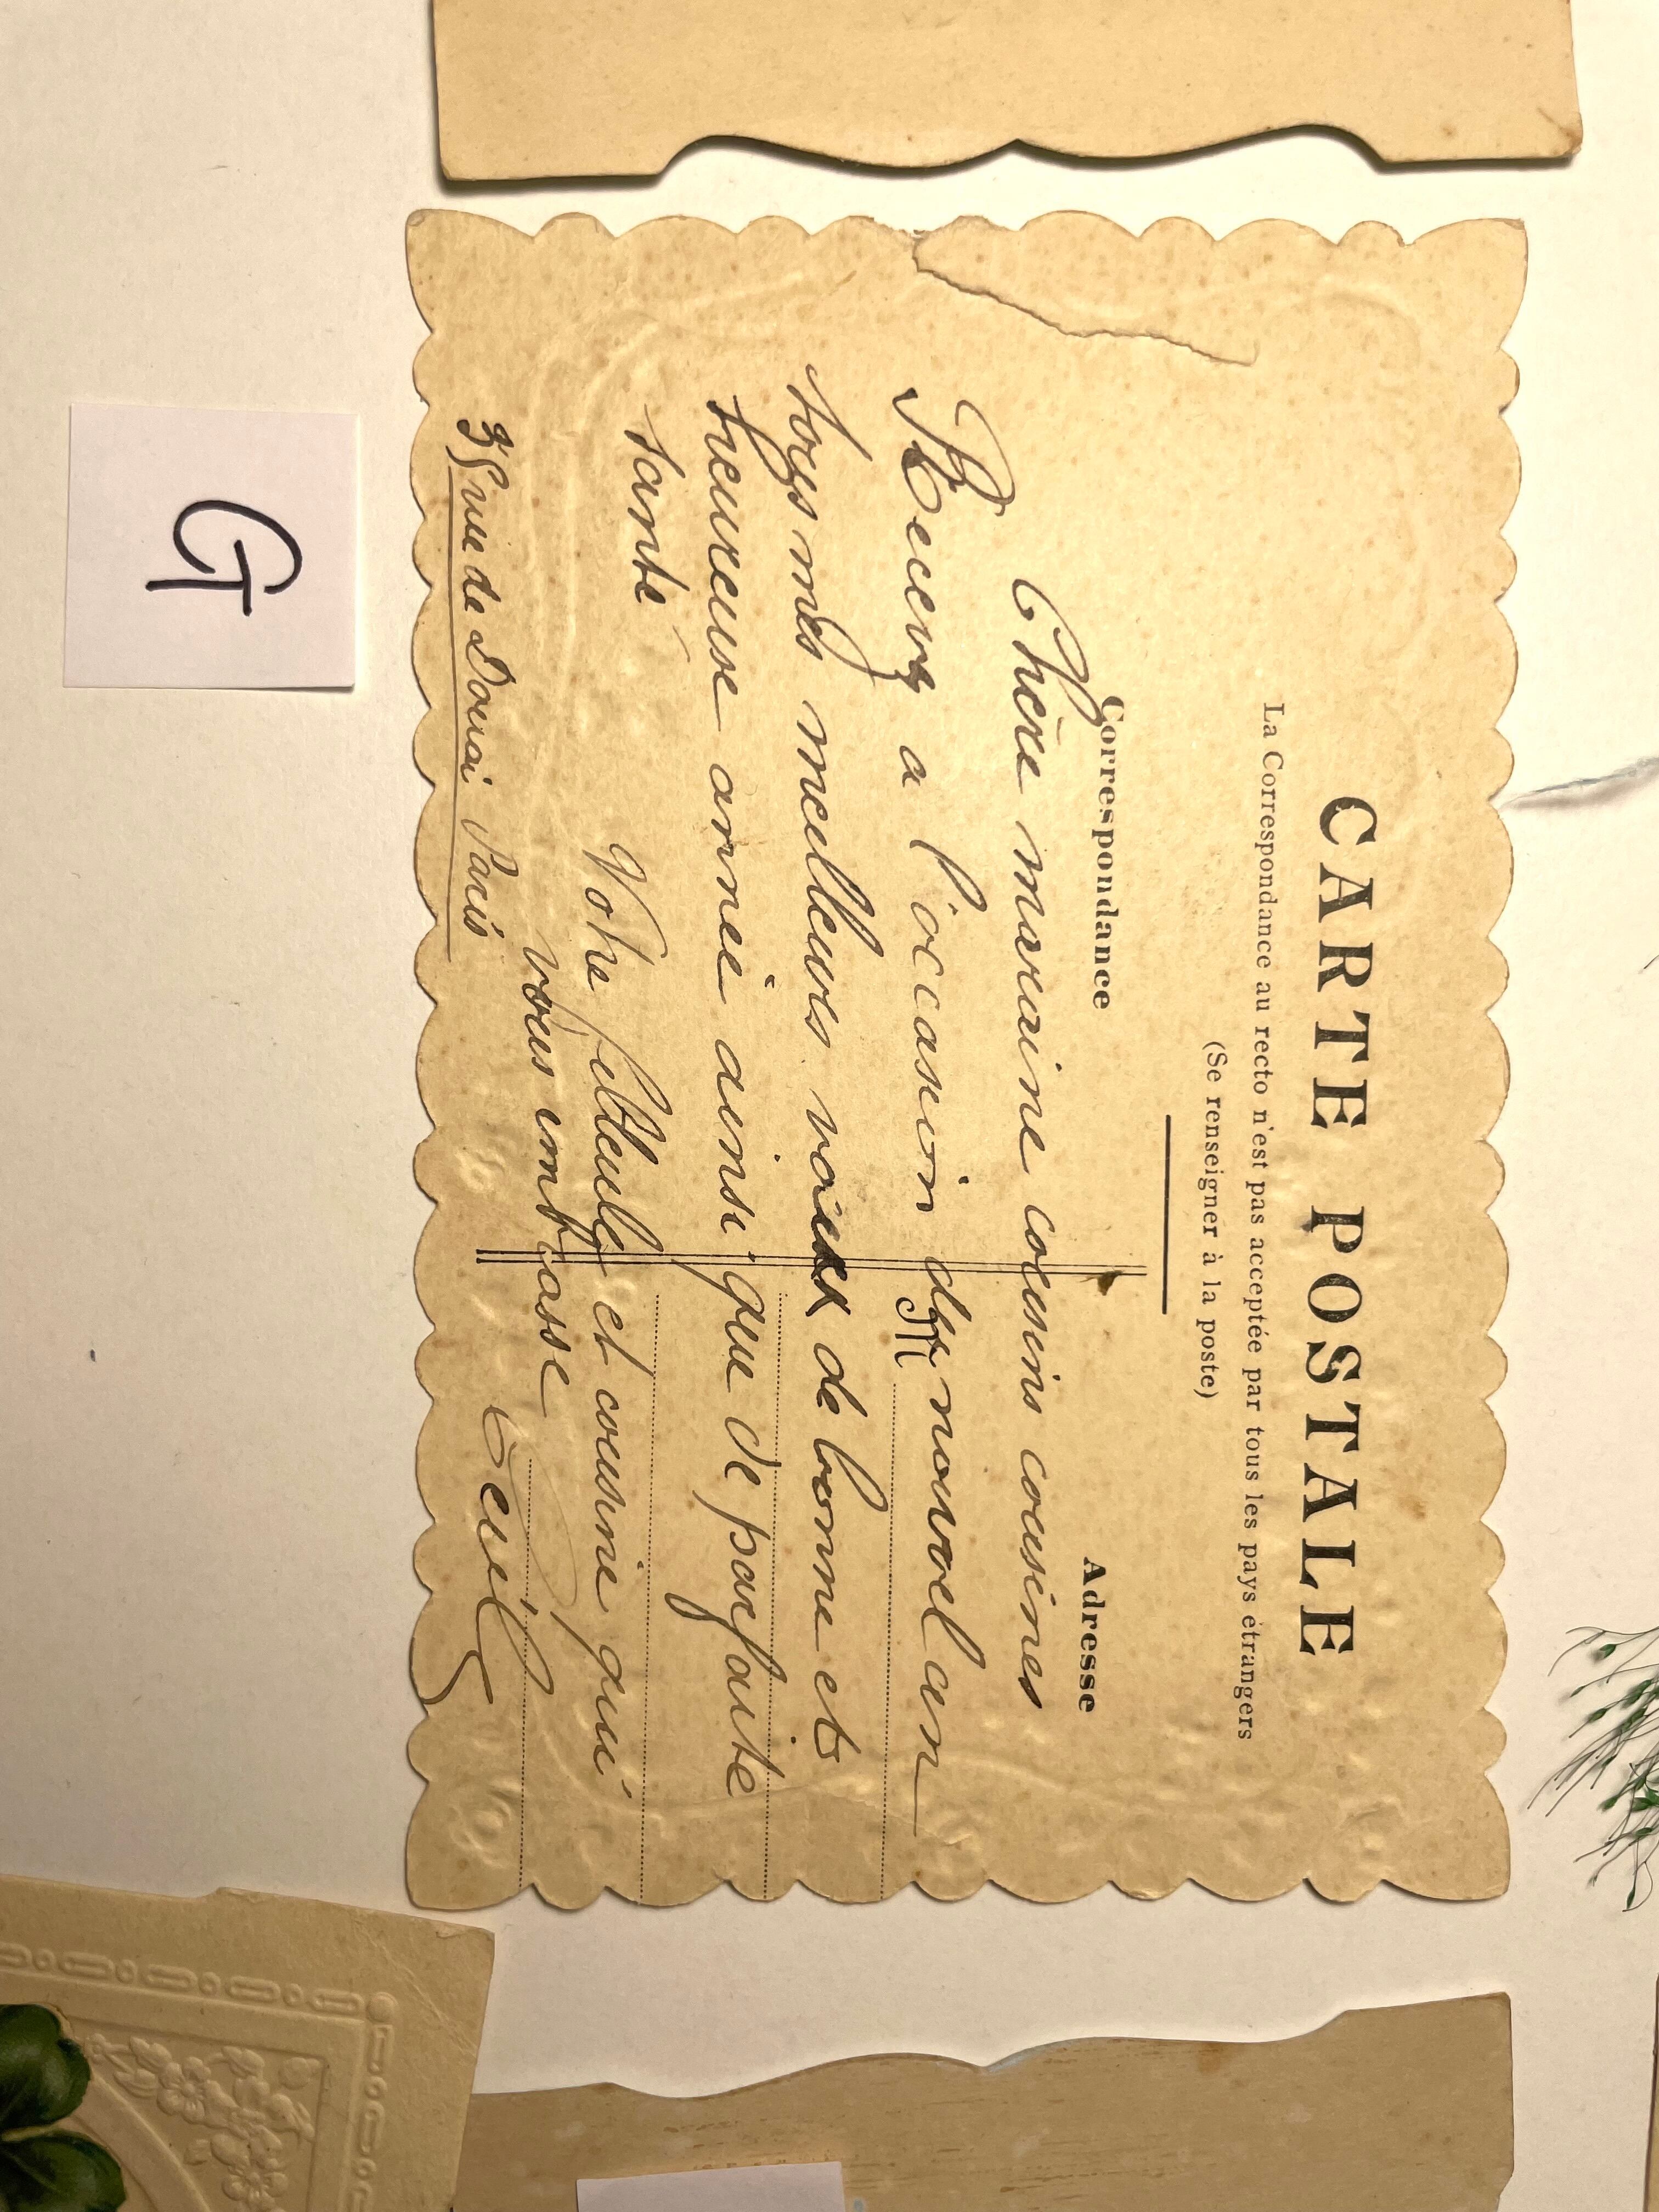 CARTE POSTALE
La Correspondance au recto n'est pas acceptée par tous les pays étrangers
(Se renseigner à la poste)
Correspondance
Adresse
Chère marraine cousins cousines
Recevez a l'occasion du nouvel an
tous mes meilleures vœux de bonne et
heureuse année ainsi que de parfaite
sante
Votre filleule et cousine qui
vous embrasse
rue de Douai Paris
G